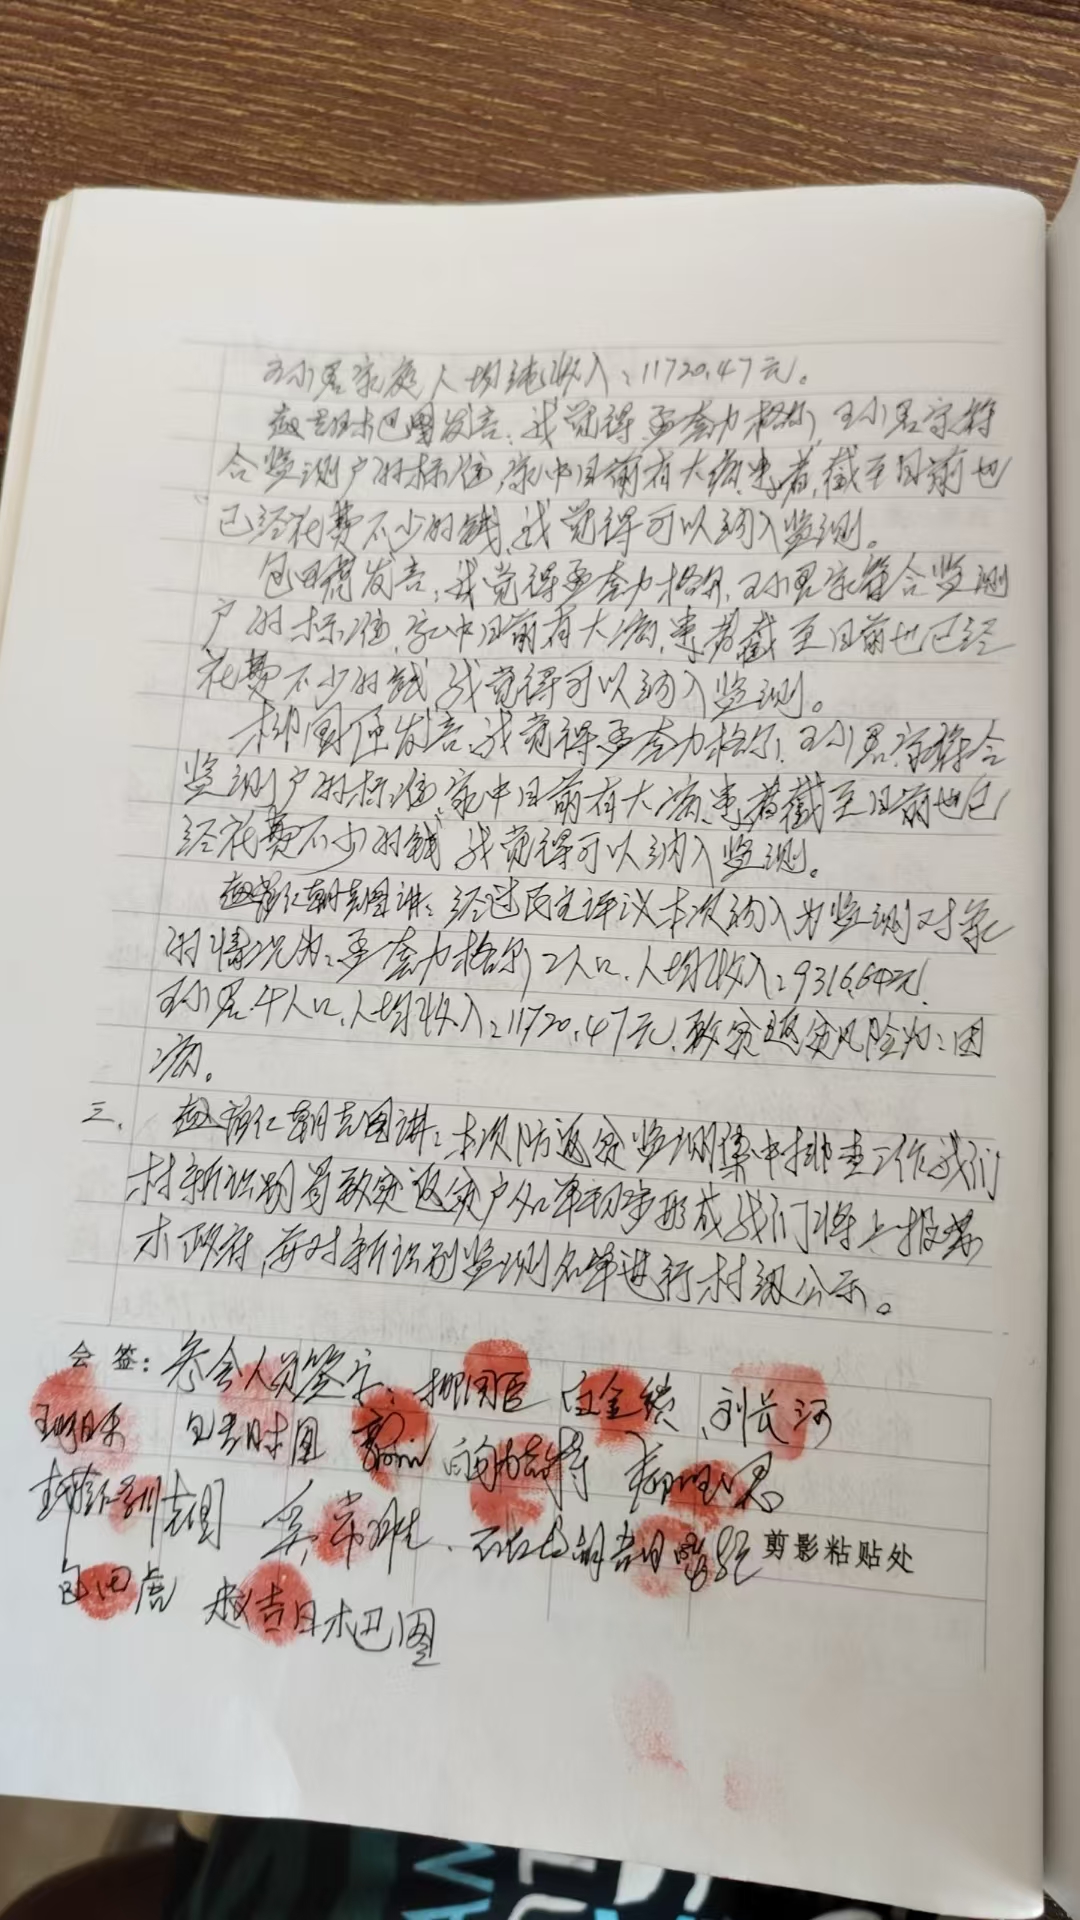 王小君家庭人均纯收入：11720.47元。
赵吉日木巴图发言：我觉得孟套力格尔，王小君家符
合监测户的标准，家中目前有大病患者，截至目前也
已经花费不少的钱，我觉得可以纳入监测。
包田虎发言：我觉得孟套力格尔，王小君家符合监测
户的标准，家中目前有大病患者截至目前也已经
花费不少的钱，我觉得可以纳入监测。
柳国臣发言：我觉得孟套力格尔，王小君家符合
监测户的标准，家中目前有大病患者截至目前也已
经花费不少的钱，我觉得可以纳入监测。
朝克图讲：经过民主评议本次纳入为监测对象
的情况为：孟套力格尔，2人口，人均收入：9316.64元，
王小君4人口，人均收入：11720.47元，致贫返贫风险为：因
病。
三、朝克图讲：本次防返贫监测集中排查工作我们
村新识别易致贫返贫户名单初步形成我们将上报
木政府，在对新识别监测名单进行村级公示。
会签：参会人员签字：柳国臣 白金锁 刘长河
包吉日木图
朝克图
包田虎 赵吉日木巴图
剪影粘贴处